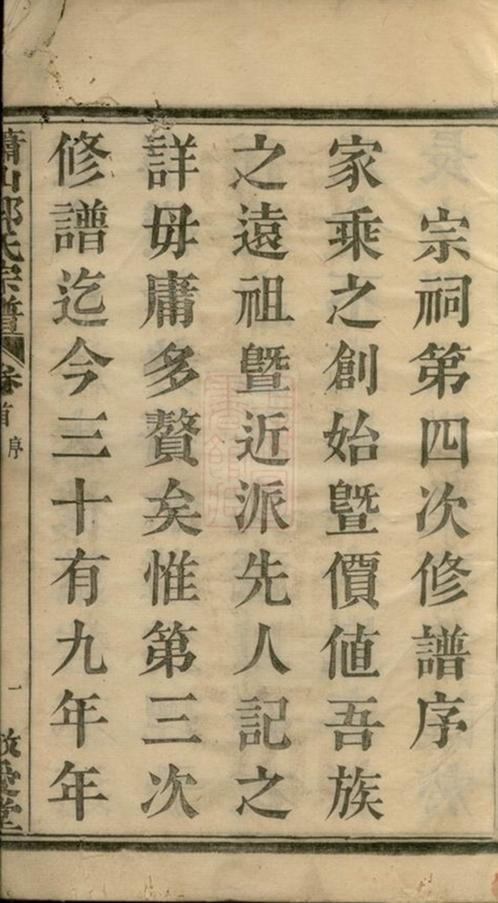 宗祠第四次修譜序
家乘之創始暨價値吾族
之遠祖暨近派先人記之
詳毋庸多贅矣惟第三次
修譜迄今三十有九年年
蕭山郎氏宗譜
卷首
序
一
敦愛堂